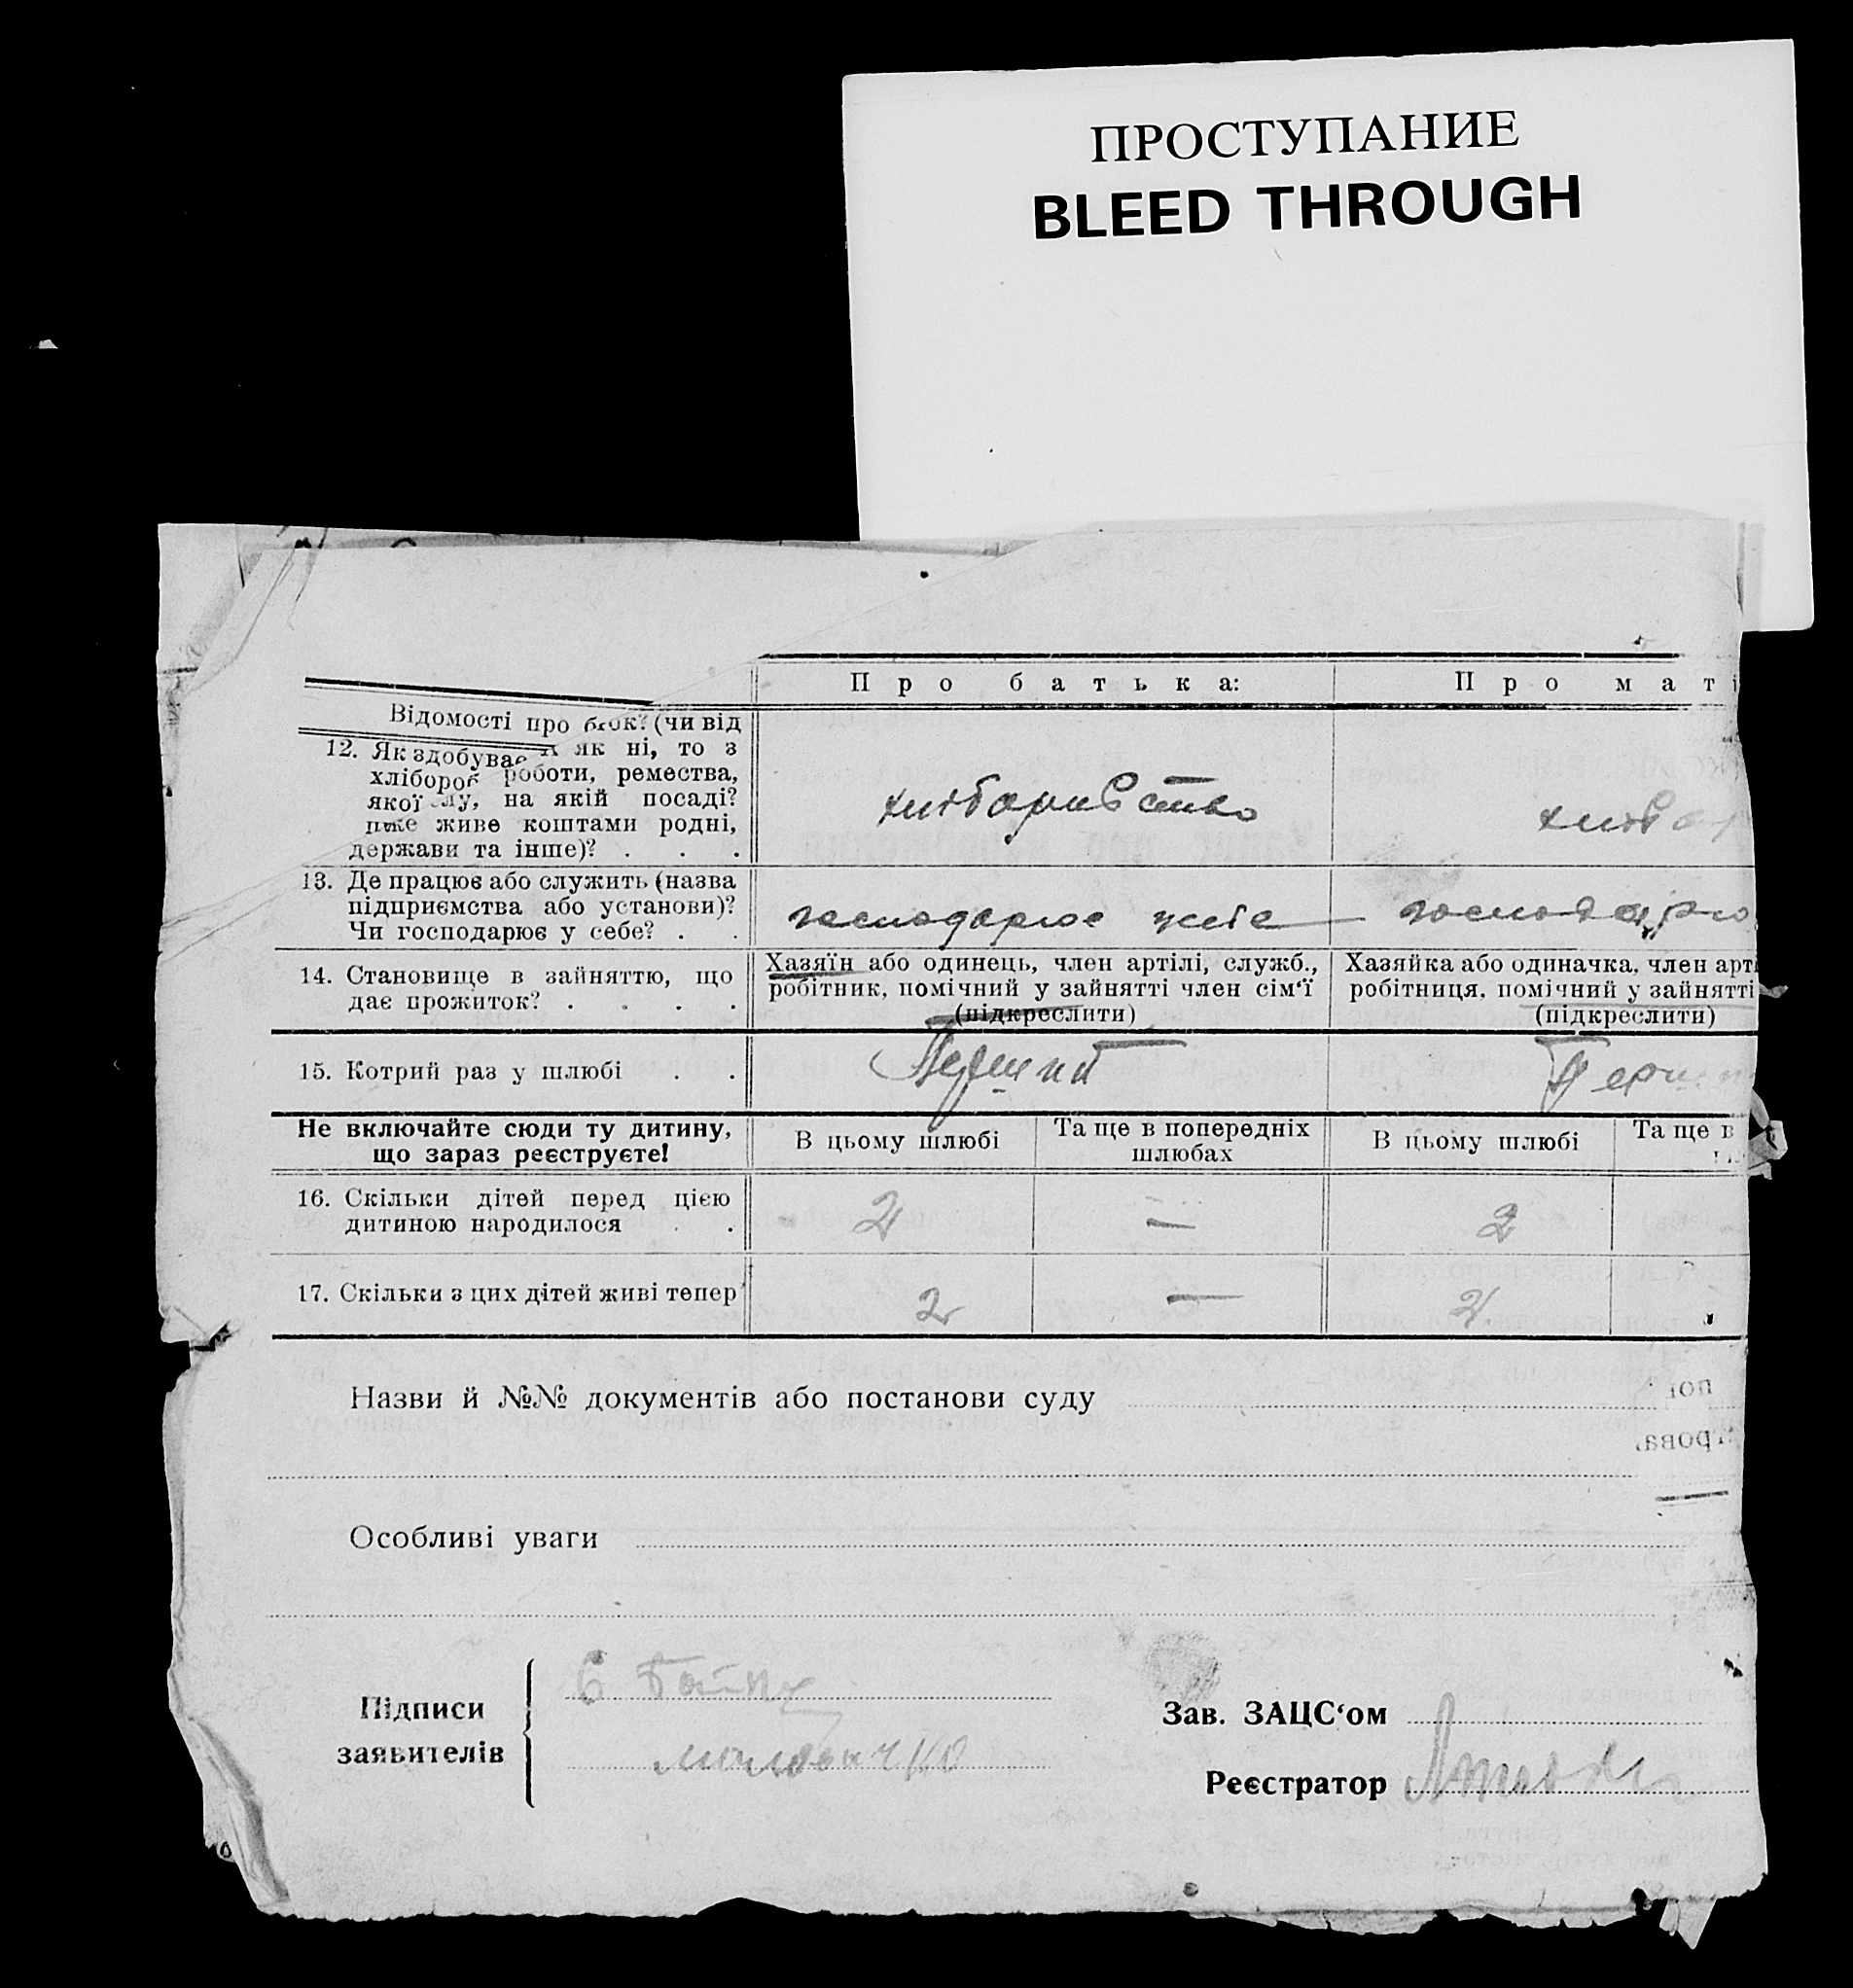 ПРОСТУПАНИЕ
BLEED THROUGH
Про батька: Про маті
Відомості про
12. Як здобуває (чи від
хлібороб як ні, то з
якої роботи, ремества,
на якій посаді?
живе коштами родні,
держави та інше)? . . .
хліборобство
13. Де працює або служить (назва
підприємства або установи)?
Чи господарює у себе? . .
господарює
14. Становище в зайняттю, що
дає прожиток? . . . .
Хазяїн або одинець, член артілі, служб.,
робітник, помічний у зайнятті член сім‘ї
(підкреслити)
Хазяйка або одиначка, член арті
робітниця, помічний у зайнятті
(підкреслити)
15. Котрий раз у шлюбі . .
Перший
Не включайте сюди ту дитину,
що зараз реєструєте!
В цьому шлюбі
Та ще в попередніх
шлюбах
В цьому шлюбі
Та ще в
16. Скільки дітей перед цією
дитиною народилося . .
2 — 2
17. Скільки з цих дітей живі тепер
2 — 2
Назви й №№ документів або постанови суду
Особливі уваги
Підписи
заявителів
Зав. ЗАЦС‘ом
Реєстратор